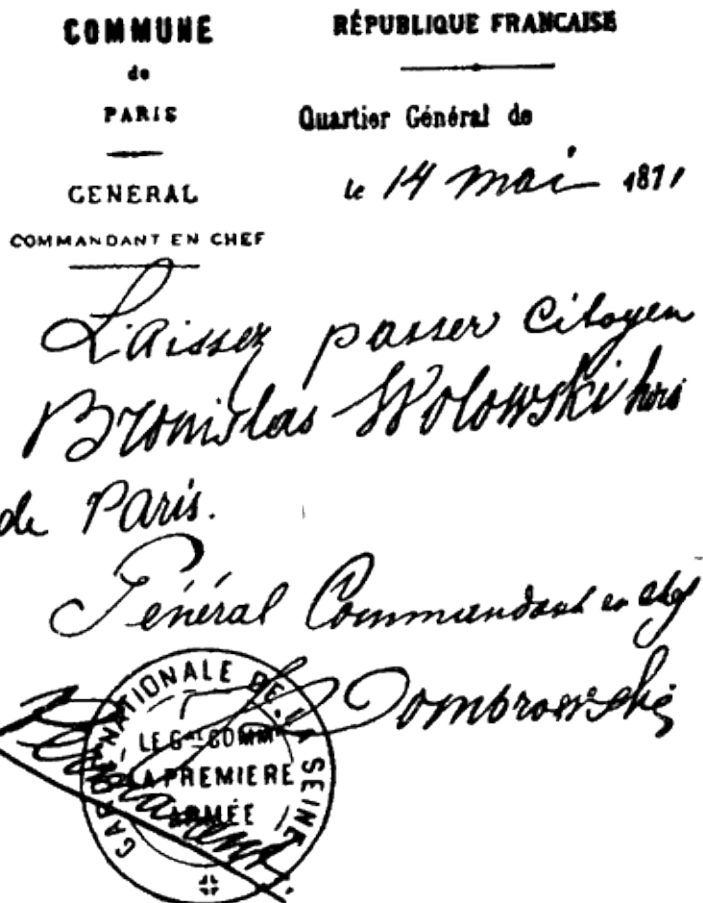 COMMUNE
de
PARIS
GENERAL
COMMANDANT EN CHEF
RÉPUBLIQUE FRANCAISE
Quartier Général de
le 14 mai 1871
Laissez passer Citoyen
Bronislas Wolowski hors
de Paris.
Général Commandant en chef
Dombrowski
GARDE NATIONALE DE LA SEINE
LE Gal COMMt
LA PREMIERE
ARMÉE